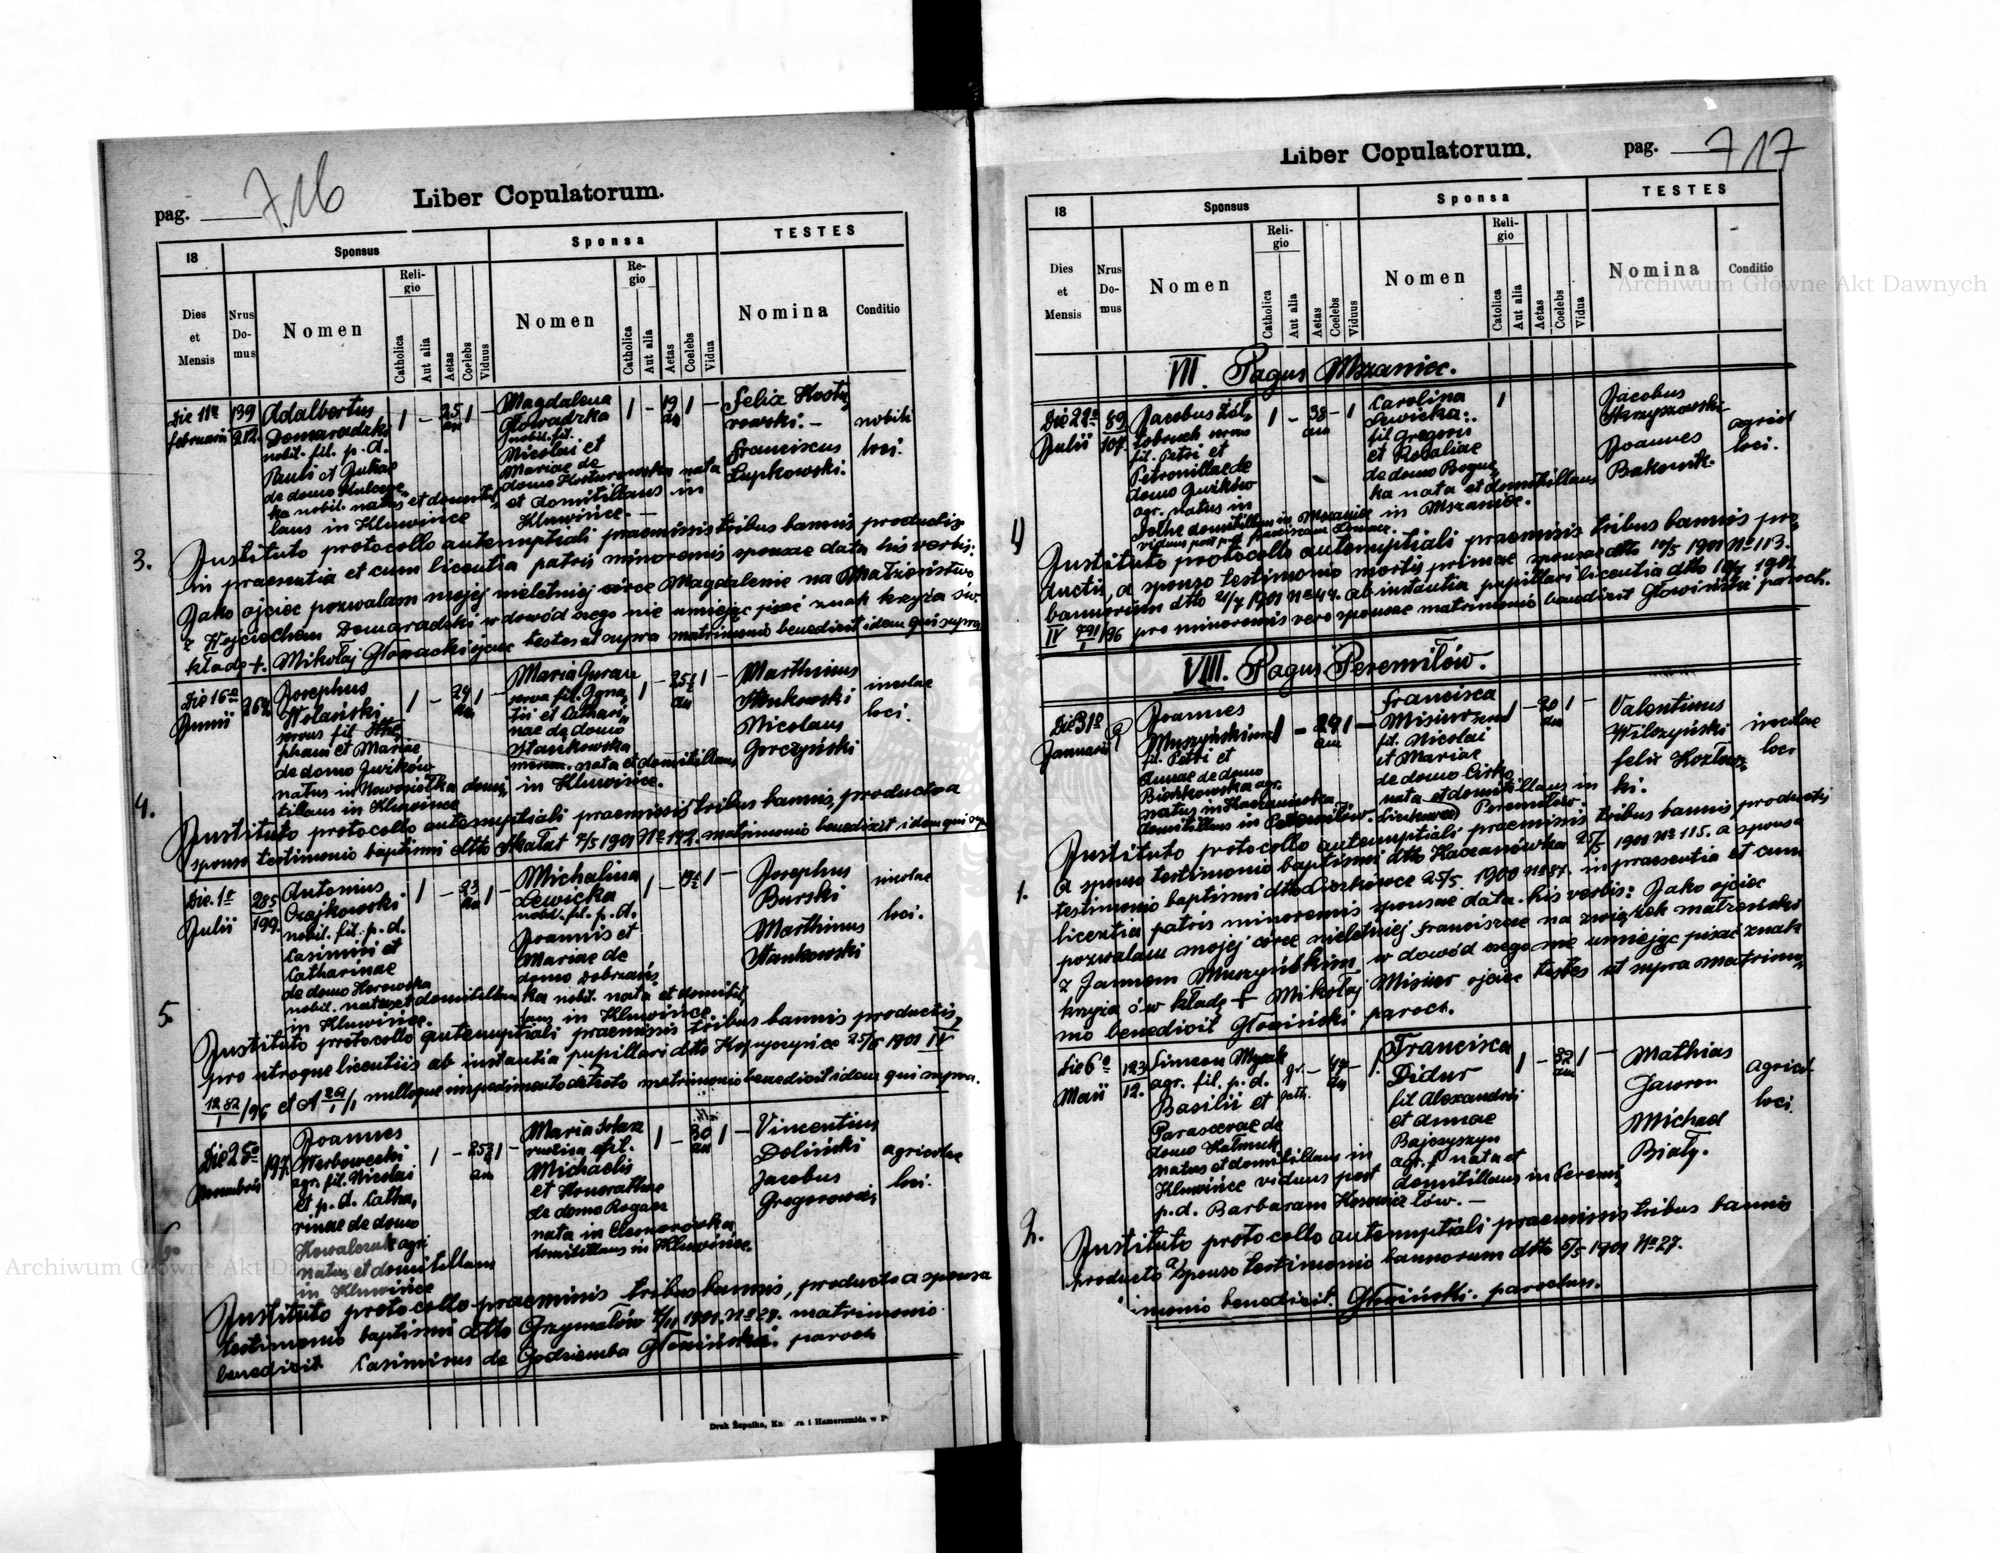 pag. 716
Liber Copulatorum.
18
Sponsus
Sponsa
TESTES
Dies et Mensis
Nrus Domus
Nomen
Religio
Catholica
Aut alia
Aetas
Coelebs
Viduus
Nomen
Regio
Catholica
Aut alia
Aetas
Coelebs
Vidua
Nomina
Conditio
3.
Die 11a Februarii
139
212.
Adalbertus
Domaradzki
nobil. fil. p. d.
Pauli et Juliae
de domo
ka nobil. natus et domicil
laus in Kluwińce
1 – 25 an 1 –
Magdalena
Głowadzka
nobil. fil.
Nicolai et
Mariae de
domo Kosturowska nata
et domitillans in
Kluwińce. –
1 – 19 an 1 –
Felix Kostu
rowski. –
Franciscus
Łupkowski.
nobili
loci.
Instituto protocollo antenuptiali praemissis tribus bannis productis
in praesentia et cum licentia patris minorenis sponsae data his verbis:
Jako ojciec pozwalam mojej nieletniej córce Magdalenie na Małżeństwo
z Wojciechem Domaradzki w dowód czego nie umiejąc pisać znak krzyża św.
kładę +. Mikołaj Głowacki ojciec testes ut supra matrimonio benedixit idem qui supra
4.
Die 16o Junii
262
Josephus
Wolański
fil. Ste
phani et Mariae
de domo Juzków
natus in Nowosiółka domi
tillans in Kluwińce
1 – 24 an 1 –
Maria Guran
fil. Igna
tii et Cathari
nae de domo
Stankowska
nata et domitillans
in Kluwińce.
1 – 25 an 1 –
Marthinus
Stankowski
Nicolaus
Gorczyński
incolae
loci.
Instituto protocollo antenuptiali praemissis tribus bannis, producto a
sponso testimonio baptismi dtto Skałat 7/5 1901 No 192. matrimonio benedixit idem qui supra
5.
Die 1o Julii
285
199.
Antonius
Czajkowski
nobil. fil. p. d.
Casimiri et
Catharinae
de domo Horowska
nobil. natus et domitillans
in Kluwińce.
1 – 23 an 1 –
Michalina
Lewicka
nobil. fil. p. d.
Joannis et
Mariae de
domo Dobrzańs
ka nobil. nata et domitil
lans in Kluwińce
1 – 19 1 –
Josephus
Burski
Marthinus
Stankowski
incolae
loci.
Instituto protocollo antenuptiali praemissis tribus bannis productis
pro utroque licentiis ab instantia pupillari dtto Kopyczyńce 25/5 1901 IV
1282/96 et A 261/1 nulloque impedimento detecto matrimonio benedixit idem qui supra.
6.
Die 25o Novembris
197.
Joannes
Werbowecki
agr. fil. Nicolai
et p. d. Catha
rinae de domo
Kowalczuk agr.
natus et domitillans
in Kluwińce
1 – 25 1 – an
Maria Solarz
rustica fil.
Michaelis
et Honorathae
de domo Rogacz
nata in Eleonorówka
domitillans in Kluwińce.
1 – 30 an 1 –
Vincentius
Doliński
Jacobus
Gregorowicz
agricolae
loci.
Instituto protocollo praemissis tribus bannis, producto a sponsa
testimonio baptismi dtto Grzymałów 7/11 1901. No 27. matrimonio
benedixit Casimirus de Godziemba Głowiński paroch
pag. 717
Liber Copulatorum.
18
Sponsus
Sponsa
TESTES
Dies et Mensis
Nrus Domus
Nomen
Religio
Catholica
Aut alia
Aetas
Coelebs
Viduus
Nomen
Religio
Catolica
Aut alia
Aetas
Coelebs
Vidua
Nomina
Conditio
VII. Pagus Mszaniec.
1)
Die 22o Julii
89
107.
Jacobus Żół
fil. Petri et
Petronillae de
domo Juzków
agr. natus in
domitillans in Mszaniec
viduus post p. d.
1 – 38 – 1 an
Carolina
Lewicka.
fil Gregorii
et Rosaliae
de domo Boguc
ka nata et domitillans
in Mszaniec.
1
Jacobus
Skrzyszowski
Joannes
Bakownik
agricol
loci.
Instituto protocollo antenuptiali praemissis tribus bannis pro
ductis, a sponso testimonio mortis primae sponsae dtto 10/5 1901 No 113.
bannorum dtto 21/7 1901 No 44. ab instantia pupillari licentia dtto 1901
IV 791/1/96 pro minorenis vero sponsae matrimonio benedixit Głowiński paroch.
VIII. Pagus Peremiłów.
1.
Die 31o Januarii
9
Joannes
Muszyński
fil. Petri et
Annae de domo
Bieńkowska agr.
natus in Kaczanówka
domitillans in Peremiłów.
1 – 29 1 – an
Francisca
Misiur
fil. Nicolai
et Mariae
de domo Cirko
nata et domitillans in
Peremiłów.
1 – 20 1 – an
Valentinus
Wilczyński
Felix Kozłow
ki.
incolae
loci
Instituto protocollo antenuptiali praemissis tribus bannis productis
a sponso testimonio baptismi dtto Kaczanówka 25/5 1901 No 115. a sponsa
testimonio baptismi dtto 25/5. 1900 No 87. in praesentia et cum
licentia patris minorenis sponsae data his verbis: Jako ojciec
pozwalam mojej córce nieletniej Franciszce na związek małżeński
z Janem Muszyńskim w dowód czego nie umiejąc pisać znak
krzyża św kładę + Mikołaj Misiur ojciec testes ut supra matrimo
nio benedixit Głowiński paroch.
2.
Die 6o Maii
123
12.
Simeon
agr. fil. p. d.
Basilii et
Parascevae de
domo Kałmuk
natus et domitillans in
Kluwińce viduus post
p. d. Barbaram
gr. cath. – 47 an – 1.
Francisca
Didur
fil Alexandri
et Annae
Bajczyszyn
agr. nata et
domitillans in Peremi
łów. –
1 – 32 1 – an
Mathias
Jaworn
Michael
Biały.
agricol
loci.
Instituto protocollo antenuptiali praemissis tribus bannis
producto a sponso testimonio bannorum dtto 5/5 1901 No 27.
imonio benedixit. Głowiński. parochus.
Druk Żupnika, Kn ra i Hamerszmida w P
Archiwum Główne Akt Dawnych
Archiwum Główne Akt Dawnych